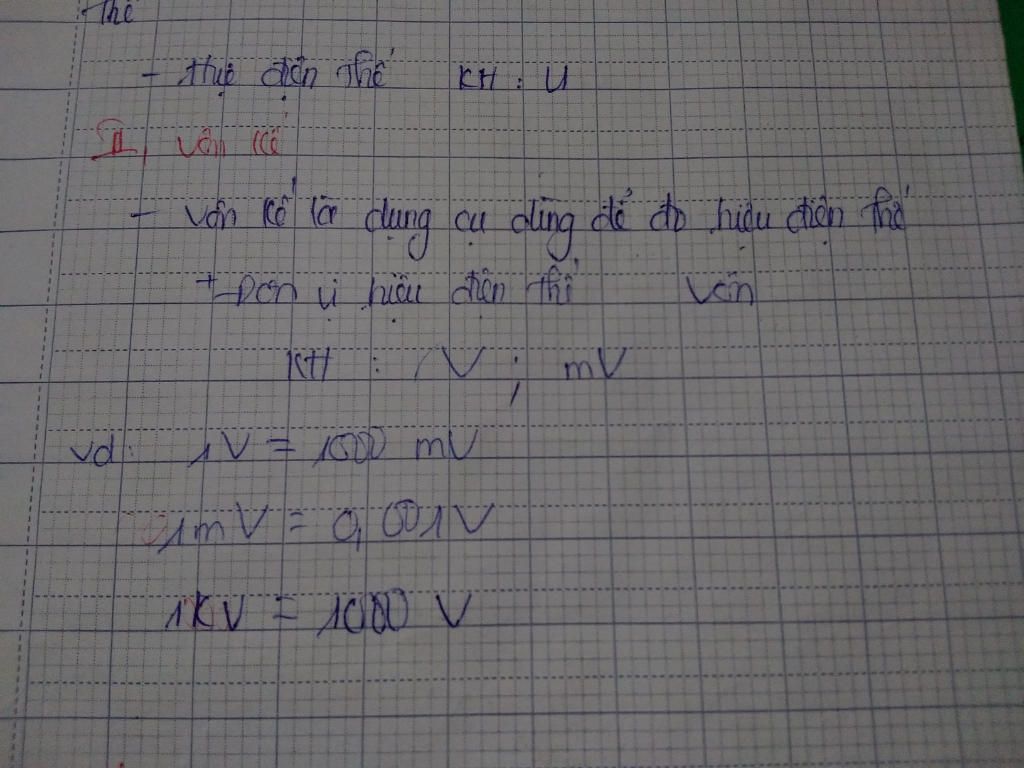 thế
- Hiệu điện thế KH : U
II, Vôn kế
- Vôn kế là dụng cụ dùng để đo hiệu điện thế
+ Đơn vị hiệu điện thế Vôn
KH : V ; mV
vd: 1V = 1000 mV
1mV = 0,001V
1KV = 1000 V